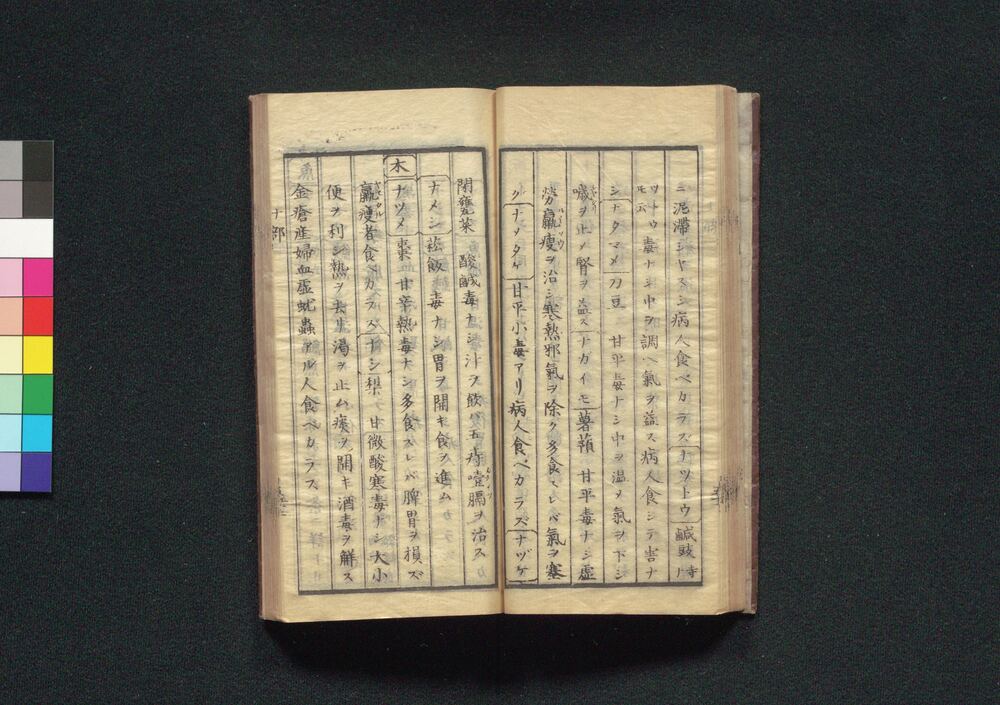 ニ泥滞シヤスシ病人食ベカラズナツトウ鹹豉寺
ツトウ毒ナシ中ヲ調ヘ氣ヲ益ス病人食シテ害ナ
シナタマメ刀豆 甘平毒ナシ中ヲ温メ氣ヲ下シ
噦ヲ止メ腎ヲ益スナガイモ薯蕷 甘平毒ナシ虚
労羸瘦ヲ治シ寒熱邪氣ヲ除ク多食スレバ氣ヲ塞
クナノタケ 甘平小毒アリ病人食ベカラズナヅケ
閉甕菜 酸鹹毒ナシ汁ヲ飲バ五痔噎膈ヲ治ス
ナメシ菘飯 毒ナシ胃ヲ開キ食ヲ進ム
木
ナツメ 棗 甘辛熱毒ナシ多食スレバ脾胃ヲ損ズ
羸瘦者食ベカラズナシ梨 甘微酸寒毒ナシ大小
便ヲ利シ熱ヲ去リ渇ヲ止ム痰ヲ開キ酒毒ヲ解ス
金瘡産婦血虚蚘蟲アル人食ベカラズ
ナ部